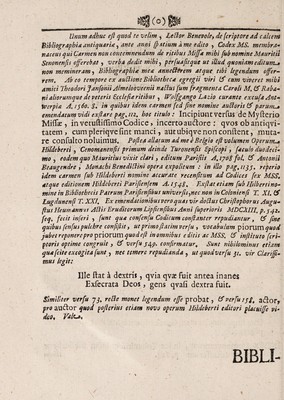 Unum adhuc est quod te velim, Lector Benevole, de scriptore ad calcem
Bibliographiæ antiquariæ, ante anni spatium à me edito, Codex MS. membranaceus
qui Carmen non contemnendum de ritibus Missæ mihi sub nomine Mauritii
Senonensis offerebat, verba dedit mihi, persuasitque ut illud quoniam editum
non memineram, Bibliographiæ meæ annecterem atque tibi legendum offerrem.
Ab eo tempore ex auctione Bibliothecæ egregii viri & cum viveret mihi
amici Theodori Jansonii Almelovenii nactus sum fragmenta Caroli M. & Rabani
aliorumque de veteris Ecclesiæ ritibus, Wolfgango Lazio curante excusa Antwerpiæ
A. 1560. 8. in quibus idem carmen sed sine nomine auctoris & parum
emendatum vidi exstare pag. 112, hoc titulo: Incipiunt versus de Mysterio
Missæ, in vetustissimo Codice, incerto auctore: quos ob antiquitatem,
cum plerique sint manci, aut ubique non constent, mutare
consulto noluimus. Postea allatum ad me è Belgio est volumen Operum
Hildeberti, Cenomanensis primum deinde Turonensis Episcopi, sæculo duodecimo,
eodem quo Mauritius vixit clari, editum Parisiis A. 1708 fol. & Antonii
Beaugendre, Monachi Benedictini opera expositum: in illo pag. 1135. reperio
idem carmen sub Hildeberti nomine accurate recensum ad Codices sex MSS.
atque editionem Hildeberti Parisiensem A. 1548. Exstat etiam sub Hildeberti nomine
in Bibliothecis Patrum Parisiensibus universis, nec non in Coloniensi T. XI. &
Lugdunensi T. XXI. Ex emendationibus vero quas vir doctus Christophorus Augustus
Heumannus Actis Eruditorum Lipsiensibus Anni superioris MDCCXIII, p. 542.
seq. fecit inseri, sunt quæ consensu Codicum constanter repudiantur, & sine
quibus sensus pulchre consistit, ut primo statim versu, vocabulum piorum quod
jubet reponere pro priorum quod est in omnibus editis ac MSS, & instituto scriptoris
optime congruit, & versu 549. confirmatur. Sunt nihilominus etiam
quæ scite excogitata sunt, nec temere repudianda, ut quod versu 31. vir Clarissimus
legit:
Ille stat à dextris, quia quæ fuit antea inanes
Exsecrata Deos, gens quasi dextra fuit.
Similiter versu 73. recte monet legendum esse probat, & versu 158. actor,
pro auctor quod posterius etiam novo operum Hildeberti editori placuisse video.
Vale.
BIBLI-